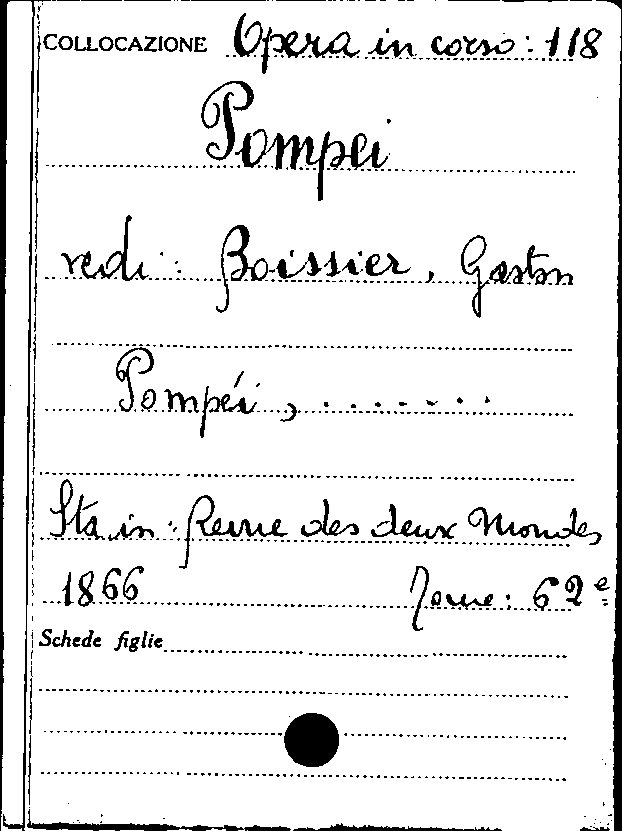 COLLOCAZIONE Opera in corso: 118
Pompei
vedi: Boissier, Gaston
Pompéi, .......
Sta in: Revue des deux Mondes
1866 Tome: 62e
Schede figlie